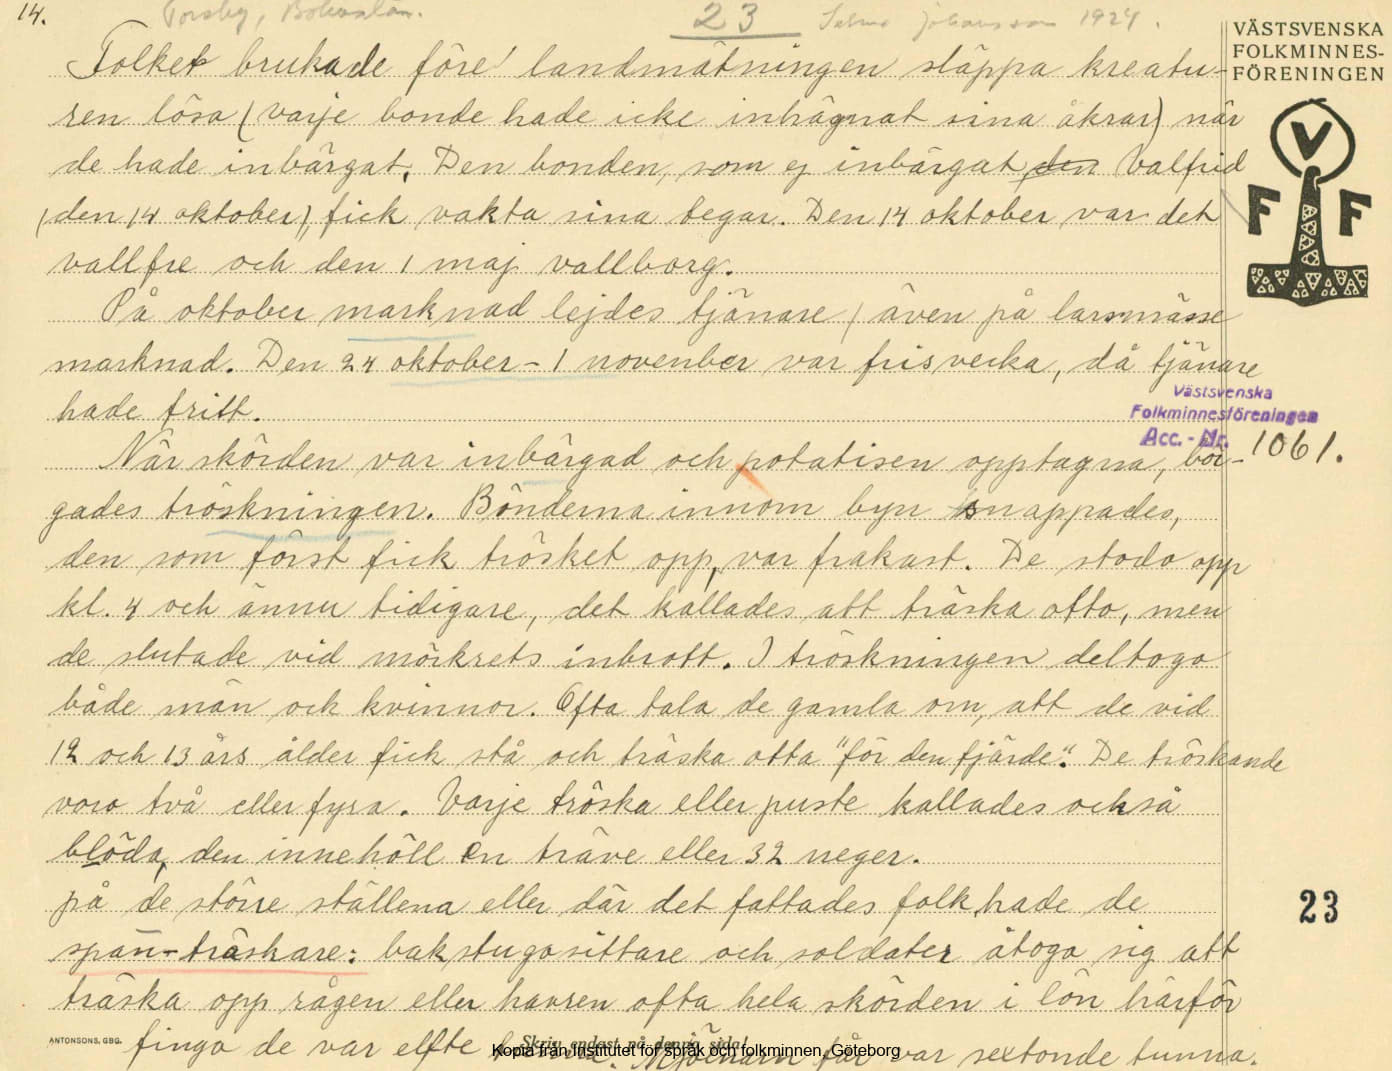 14. Torsby, Bohuslän. 23 Selma Johansson 1924.
VÄSTSVENSKA
FOLKMINNES-
FÖRENINGEN
V
F F
Folket brukade före landmätningen släppa kreatu-
ren lösa (varje bonde hade icke inhägnat sina åkrar) när
de hade inbärgat. Den bonden, som ej inbärgat den Valfrid
(den 14 oktober), fick vakta sina tegar. Den 14 oktober var det
vallfre och den 1 maj vallborg.
På oktober marknad lejdes tjänare (även på larsmässe
marknad. Den 24 oktober - 1 november var frisvecka, då tjänare
hade fritt.
Västsvenska
Folkminnesföreningen
Acc.-Nr. 1061.
När skörden var inbärgad och potatisen opptagna, bör-
gades tröskningen. Bönderna innom byn snappades,
den som först fick trösket opp, var frakast. De stodo opp
kl. 4 och ännu tidigare, det kallades att träska otto, men
de slutade vid mörkrets inbrott. I tröskningen deltogo
både män och kvinnor. Ofta tala de gamla om, att de vid
12 och 13 års ålder fick stå och träska otta "för den fjärde". De tröskande
voro två eller fyra. Varje tröska eller puste kallades också
blöda, den innehöll en träve eller 32 neger.
på de större ställena eller där det fattades folk, hade de
23
spän-träskare: bakstugosittare och soldater åtogo sig att
träska opp rågen eller havren ofta hela skörden i lön härför
ANTONSONS, GBG.
Skriv endast på denna sida!
fingo de var elfte får var sextonde tunna.
Kopia från Institutet för språk och folkminnen, Göteborg